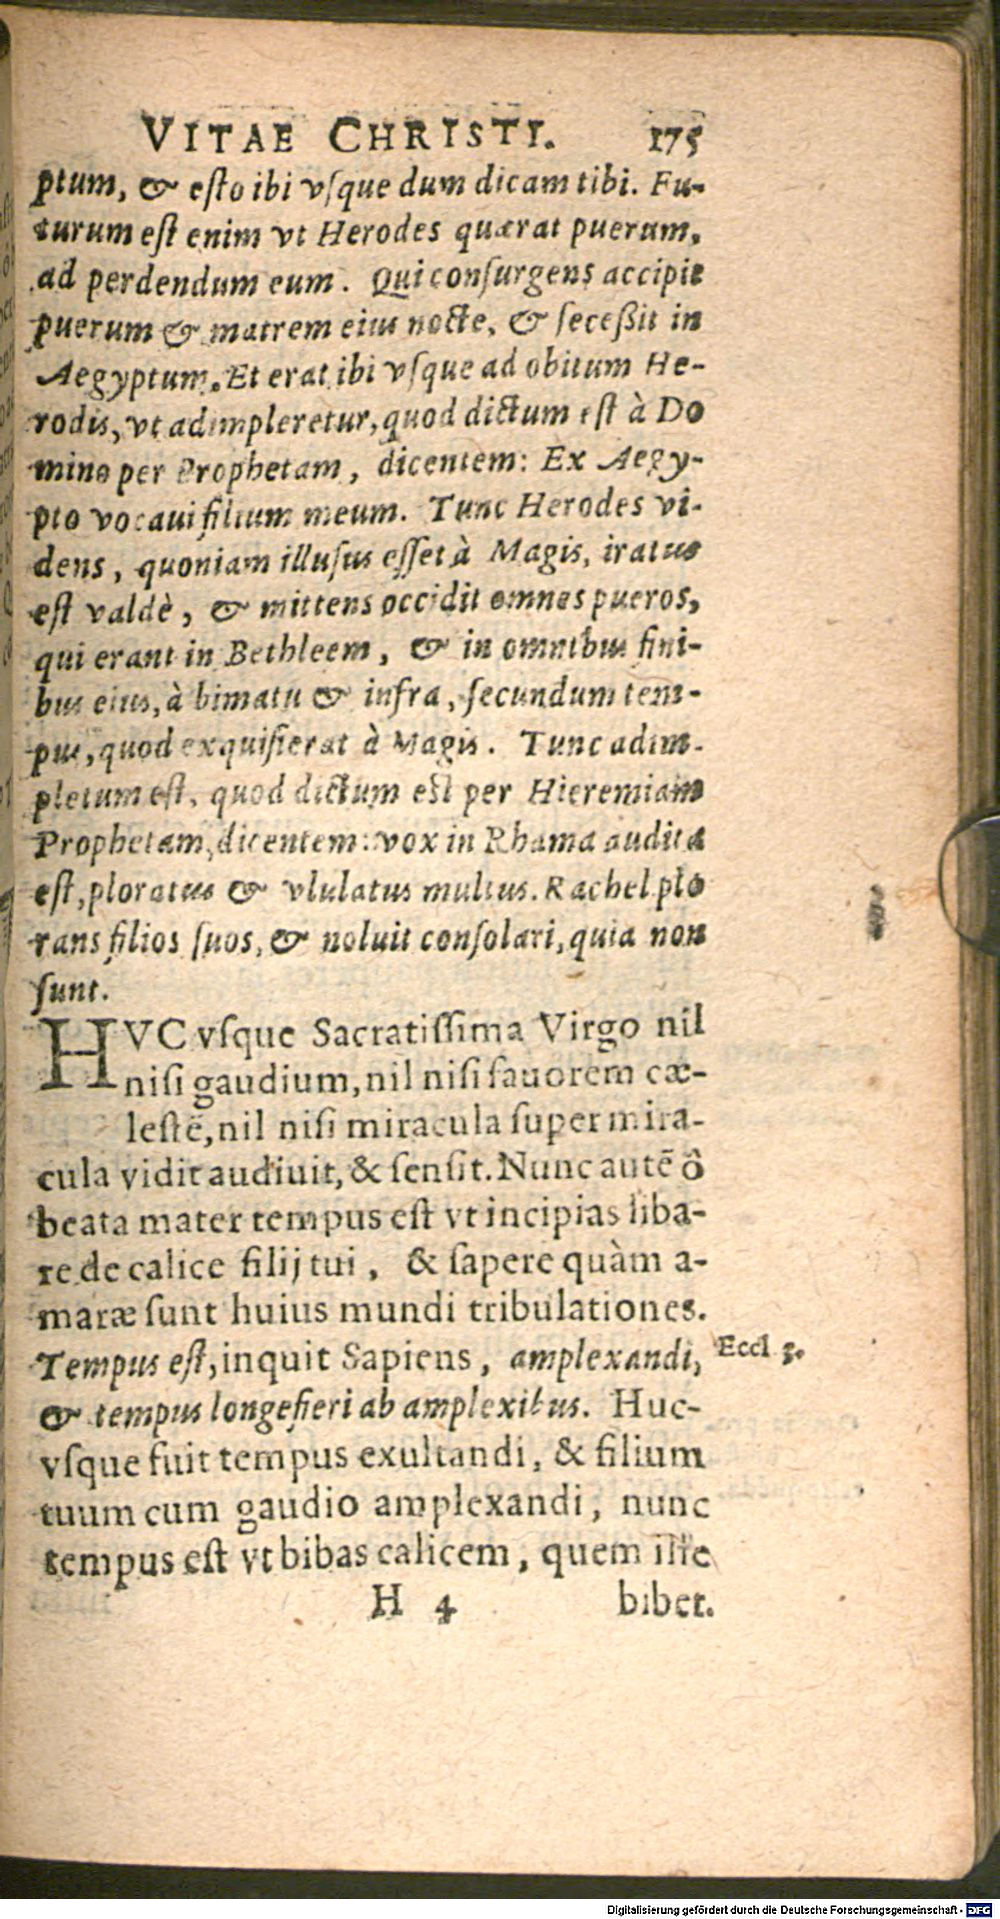 VITAE CHRISTI. 175
ptum, & esto ibi vsque dum dicam tibi. Fu-
turum est enim vt Herodes quærat puerum,
ad perdendum eum. Qui consurgens accipit
puerum & matrem eius nocte, & secessit in
Aegyptum. Et erat ibi vsque ad obitum He-
rodis, vt adimpleretur, quod dictum est à Do
mino per Prophetam, dicentem: Ex Aegy-
pto vocaui filium meum. Tunc Herodes vi-
dens, quoniam illusus esset à Magis, iratus
est valdè, & mittens occidit omnes pueros,
qui erant in Bethleem, & in omnibus fini-
bus eius, à bimatu & infra, secundum tem-
pus, quod exquisierat à Magis. Tunc adim-
pletum est, quod dictum est per Hieremiam
Prophetam, dicentem: vox in Rhama audita
est, ploratus & vlulatus multus. Rachel plo
rans filios suos, & noluit consolari, quia non
sunt.
HVC vsque Sacratissima Virgo nil
nisi gaudium, nil nisi fauorem cæ-
lestē, nil nisi miracula super mira-
cula vidit audiuit, & sensit. Nunc autē ô
beata mater tempus est vt incipias liba-
re de calice filij tui, & sapere quàm a-
maræ sunt huius mundi tribulationes.
Tempus est, inquit Sapiens, amplexandi, Eccl 3.
& tempus longe fieri ab amplexibus. Huc-
vsque fuit tempus exultandi, & filium
tuum cum gaudio amplexandi, nunc
tempus est vt bibas calicem, quem iste
H 4 bibet.
Digitalisierung gefördert durch die Deutsche Forschungsgemeinschaft - DFG